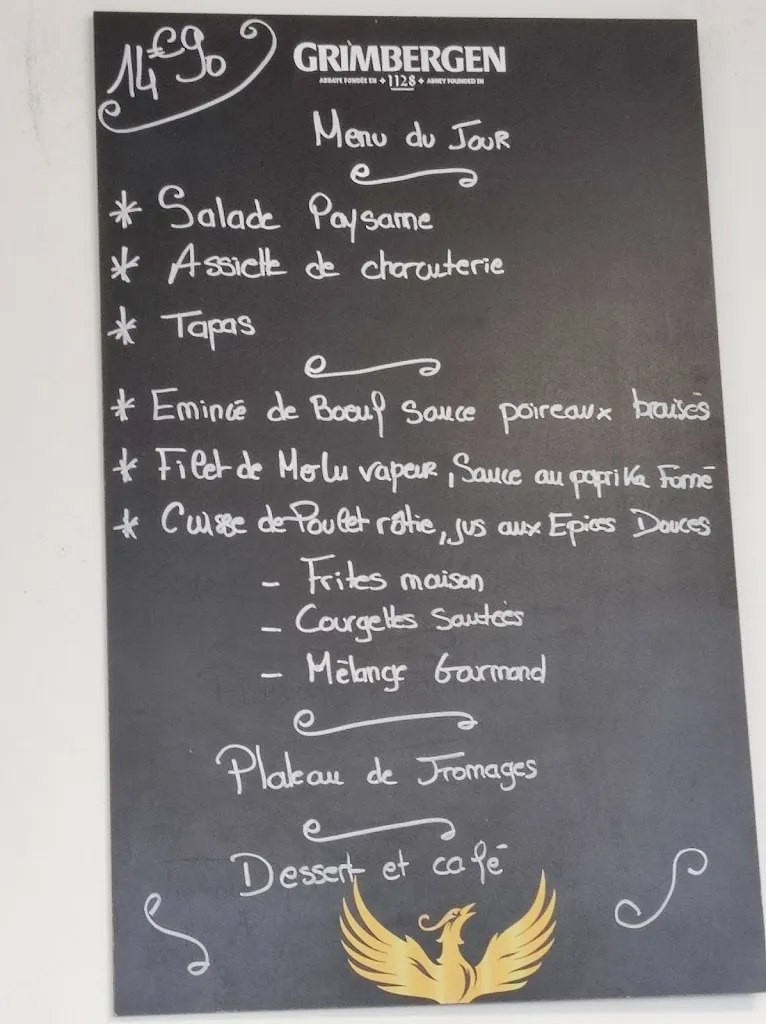 14€90
GRIMBERGEN
ABBAYE FONDÉE EN + 1128 + ABBEY FOUNDED IN
Menu du Jour
* Salade Paysanne
* Assiette de charcuterie
* Tapas
* Emincé de Boeuf sauce poireaux braisés
* Filet de Merlu vapeur, Sauce au paprika Fumé
* Cuisse de Poulet rôtie, jus aux Epices Douces
- Frites maison
- Courgettes Sautées
- Mélange Gourmand
Plateau de Fromages
Dessert et café